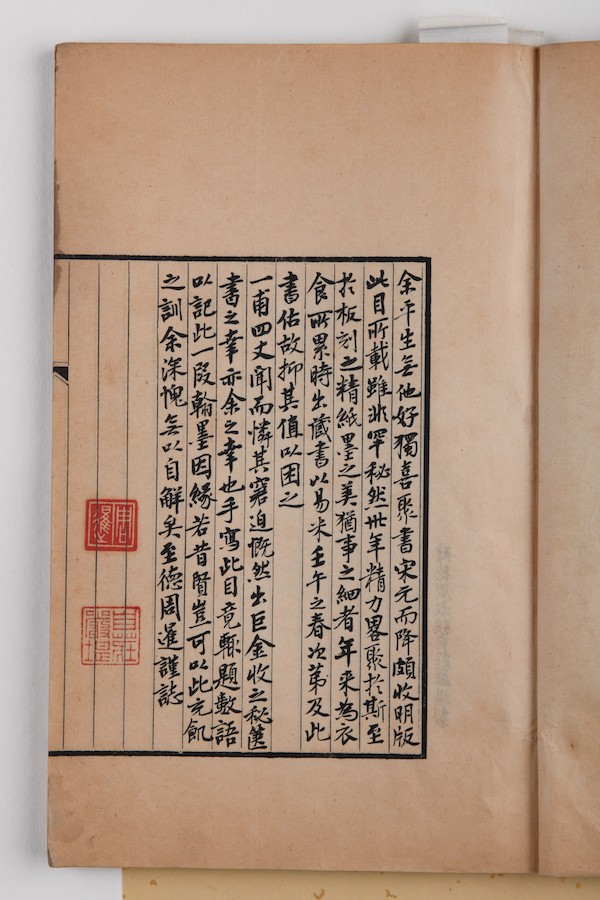 余平生無他好獨喜聚書宋元而降頗收明版
此目所載雖非罕秘然卅年精力畧聚於斯至
於板刻之精紙墨之美猶事之細者年来為衣
食所累時出藏書以易米壬午之春次第及此
書估故抑其值以困之
一甫四丈聞而憐其窘迫慨然出巨金收之秘篋
書之幸亦余之幸也手寫此目竟輒題數語
以記此一段翰墨因緣若昔賢豈可以此充飢
之訓余深愧無以自解矣至德周暹謹誌
周暹
自莊嚴堪